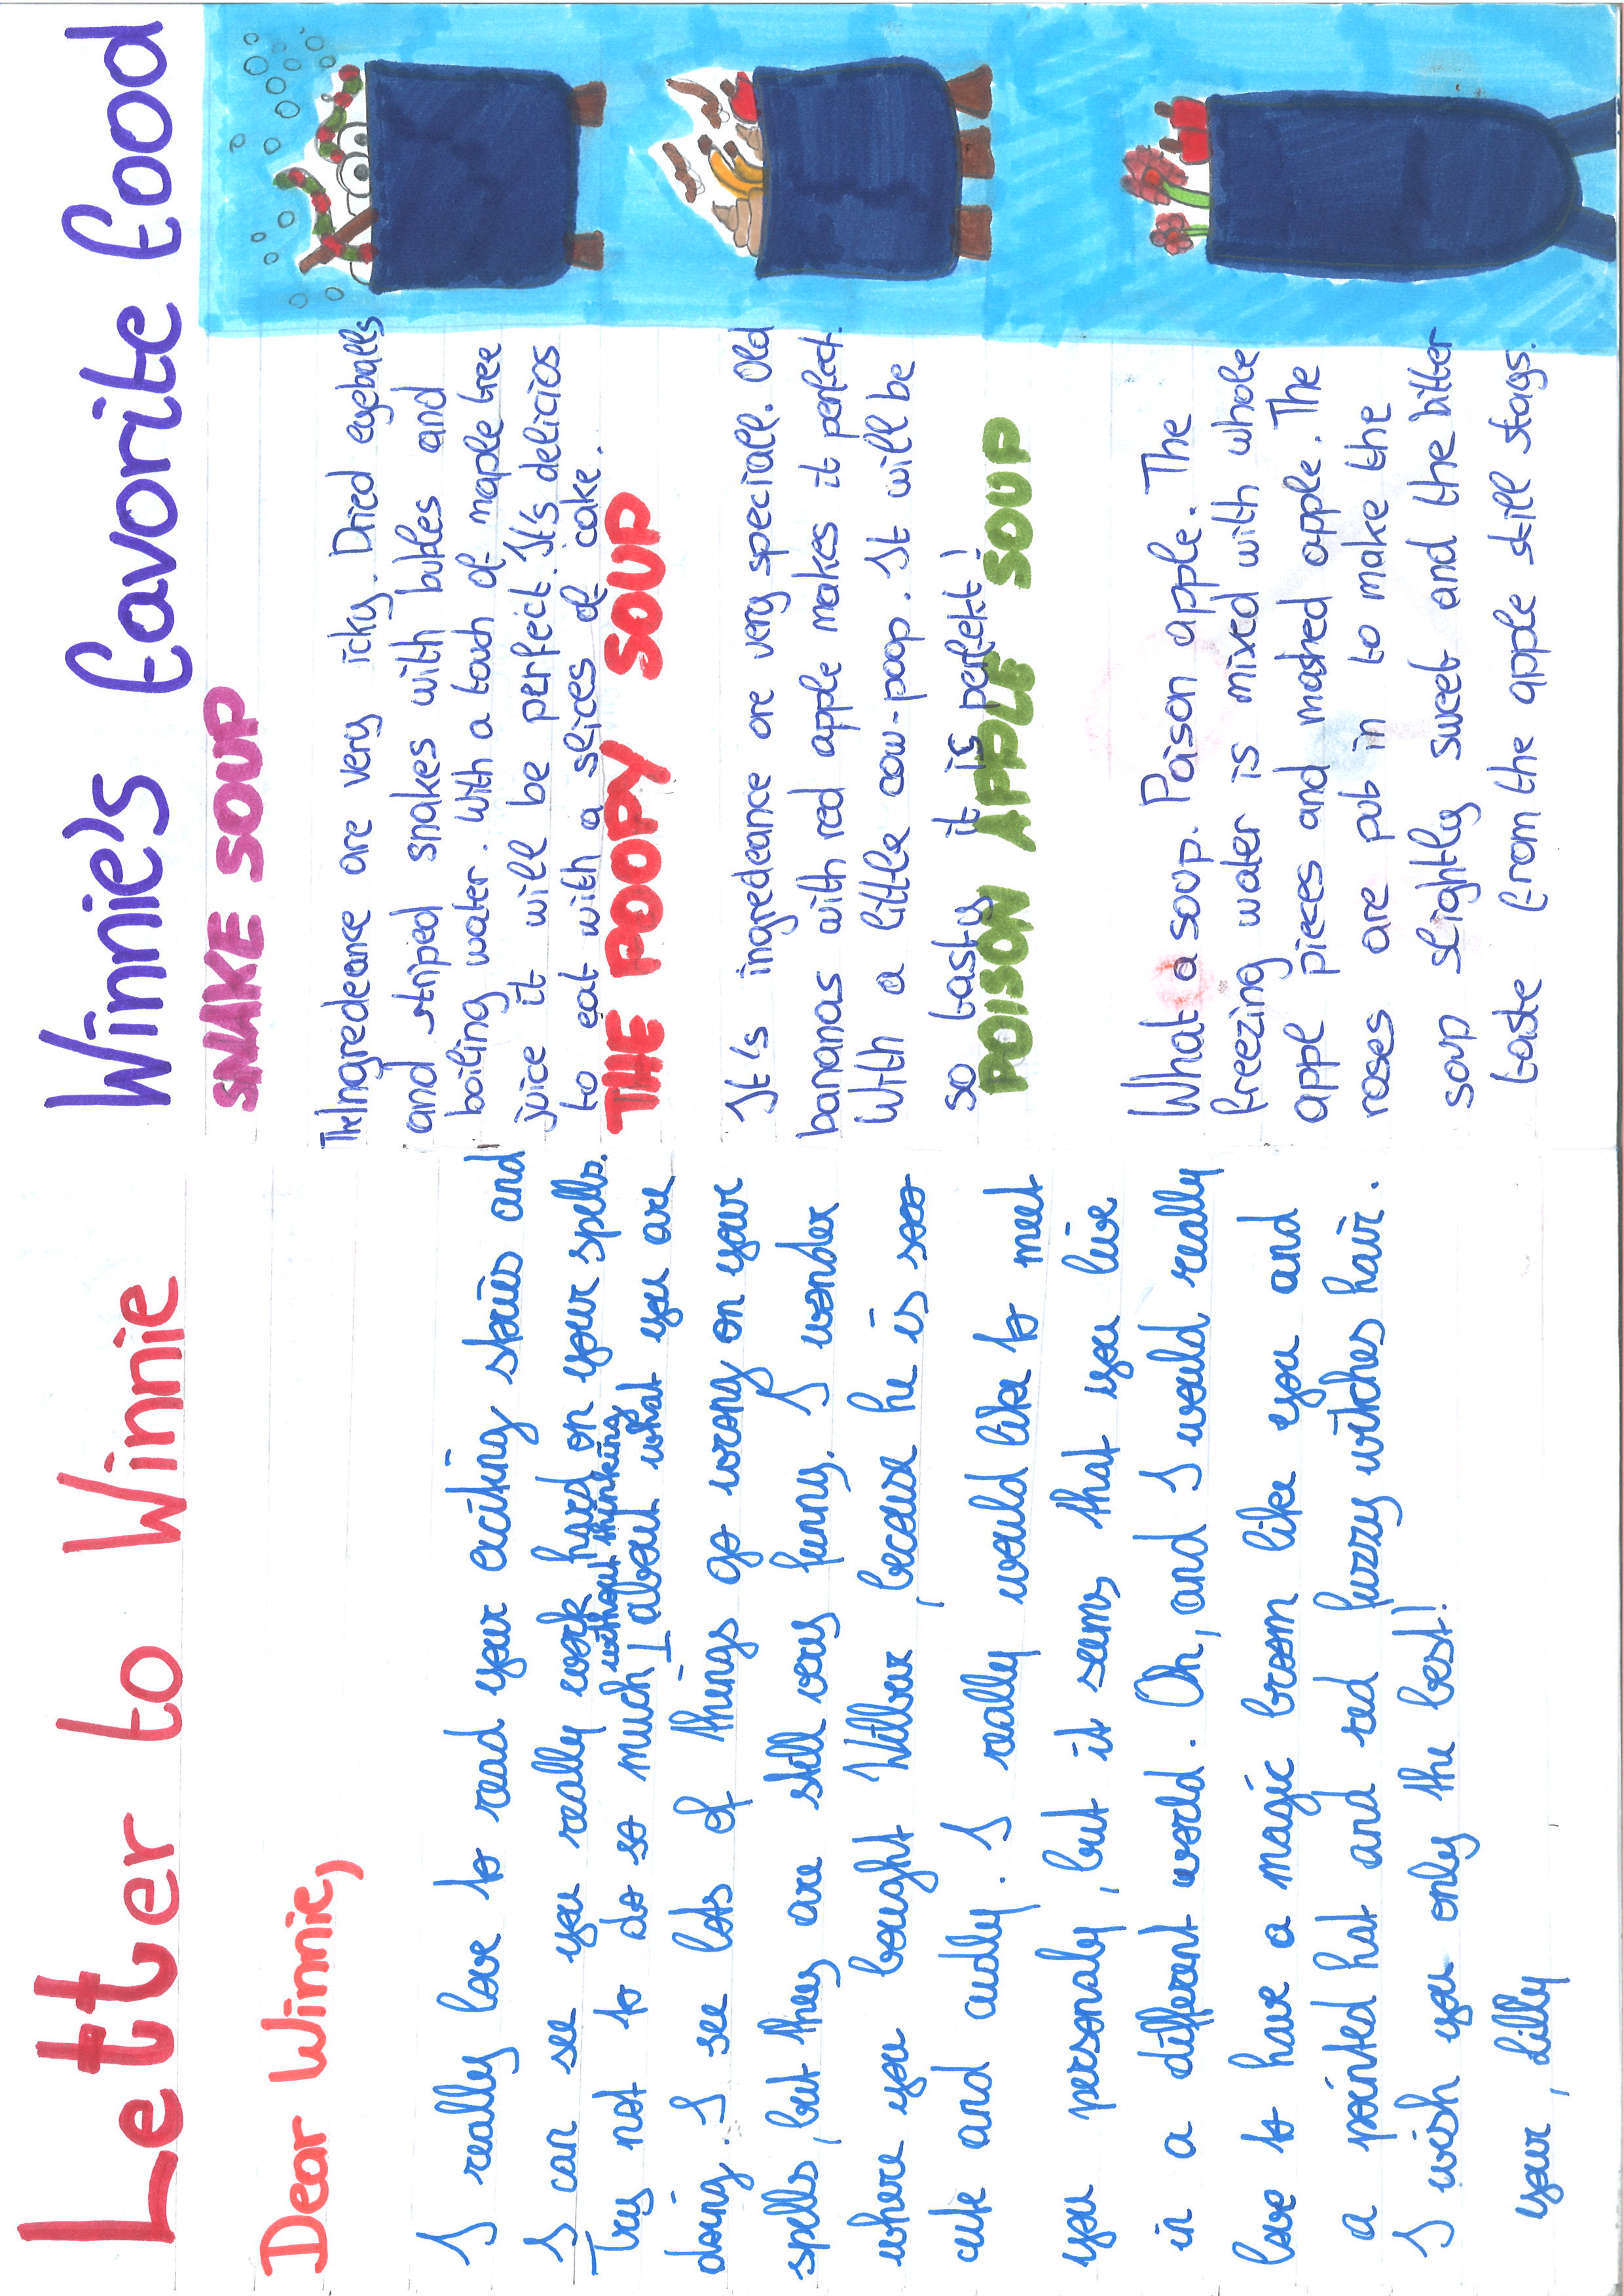 Letter to Winnie
Dear Winnie,
I really love to read your exciting stories and
I can see you really work hard on your spells.
Try not to do so much without thinking about what you are
doing. I see lots of things go wrong on your
spells, but they are still very funny. I wonder
where you bought Wilbur, because he is soo
cute and cudly. I really would like to meet
you personaly, but it seems that you live
in a different world. Oh, and I would really
love to have a magic broom like you and
a pointed hat and red fuzzy witches hair.
I wish you only the best!
your, Lilly
Winnie's favorite food
SNAKE SOUP
The Ingredeance are very icky. Dried eyeballs
and striped snakes with bubles and
boiling water. With a touch of maple tree
juice it will be perfect. It's delicios
to eat with a slices of cake.
THE POOPY SOUP
It's ingredeance are very speciall. Old
bananas with red apple makes it perfect.
With a little cow-poop. It will be
so tasty it is perfekt!
POISON APPLE SOUP
What a soup. Poison apple. The
freezing water is mixed with whole
appl pieces and mashed apple. The
roses are put in to make the
soup slightly sweet and the bitter
taste from the apple still stays.